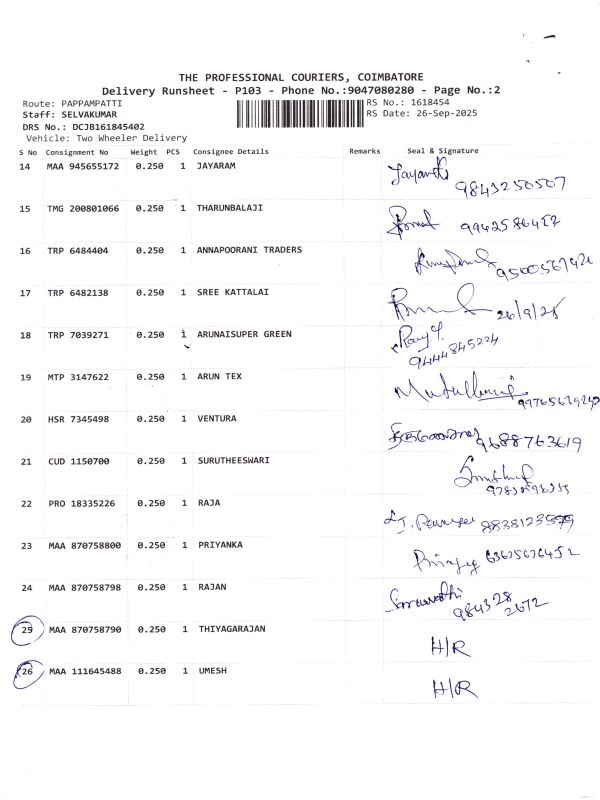 THE PROFESSIONAL COURIERS, COIMBATORE
Delivery Runsheet - P103 - Phone No.:9047080280 - Page No.:2
Route: PAPPAMPATTI RS No.: 1618454
Staff: SELVAKUMAR RS Date: 26-Sep-2025
DRS No.: DCJB161845402
Vehicle: Two Wheeler Delivery
S No Consignment No Weight PCS Consignee Details Remarks Seal & Signature
14 MAA 945655172 0.250 1 JAYARAM
9843250507
15 TMG 200801066 0.250 1 THARUNBALAJI
9942586412
16 TRP 6484404 0.250 1 ANNAPOORANI TRADERS
17 TRP 6482138 0.250 1 SREE KATTALAI
26/9/25
18 TRP 7039271 0.250 1 ARUNAISUPER GREEN
9444845224
19 MTP 3147622 0.250 1 ARUN TEX
20 HSR 7345498 0.250 1 VENTURA
9688763619
21 CUD 1150700 0.250 1 SURUTHEESWARI
22 PRO 18335226 0.250 1 RAJA
23 MAA 870758800 0.250 1 PRIYANKA
24 MAA 870758798 0.250 1 RAJAN
984328
2672
25 MAA 870758790 0.250 1 THIYAGARAJAN H/R
26 MAA 111645488 0.250 1 UMESH H/R